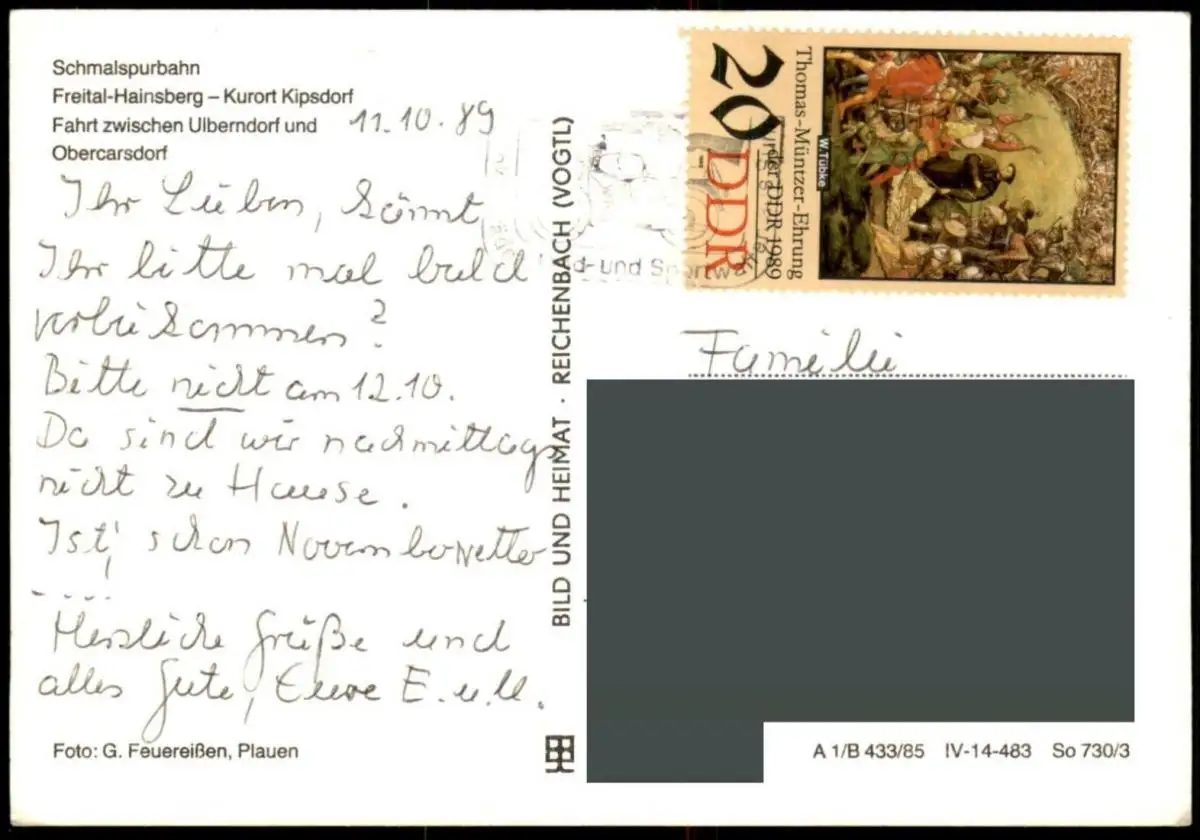 Schmalspurbahn
Freital-Hainsberg – Kurort Kipsdorf
Fahrt zwischen Ulberndorf und
Obercarsdorf
11.10.89
Ihr Lieben, könnt
Ihr bitte mal bald
vorbeikommen?
Bitte nicht am 12.10.
Da sind wir nachmittags
nicht zu Hause.
Ist! schon Novemberwetter
.....
Herzliche Grüße und
alles Gute, Eure E. u. U.
Foto: G. Feuereißen, Plauen
BILD UND HEIMAT · REICHENBACH (VOGTL)
20 DDR
Thomas-Müntzer-Ehrung
der DDR 1989
W. Tübke
d-und Sportw
Familie
A 1/B 433/85 IV-14-483 So 730/3